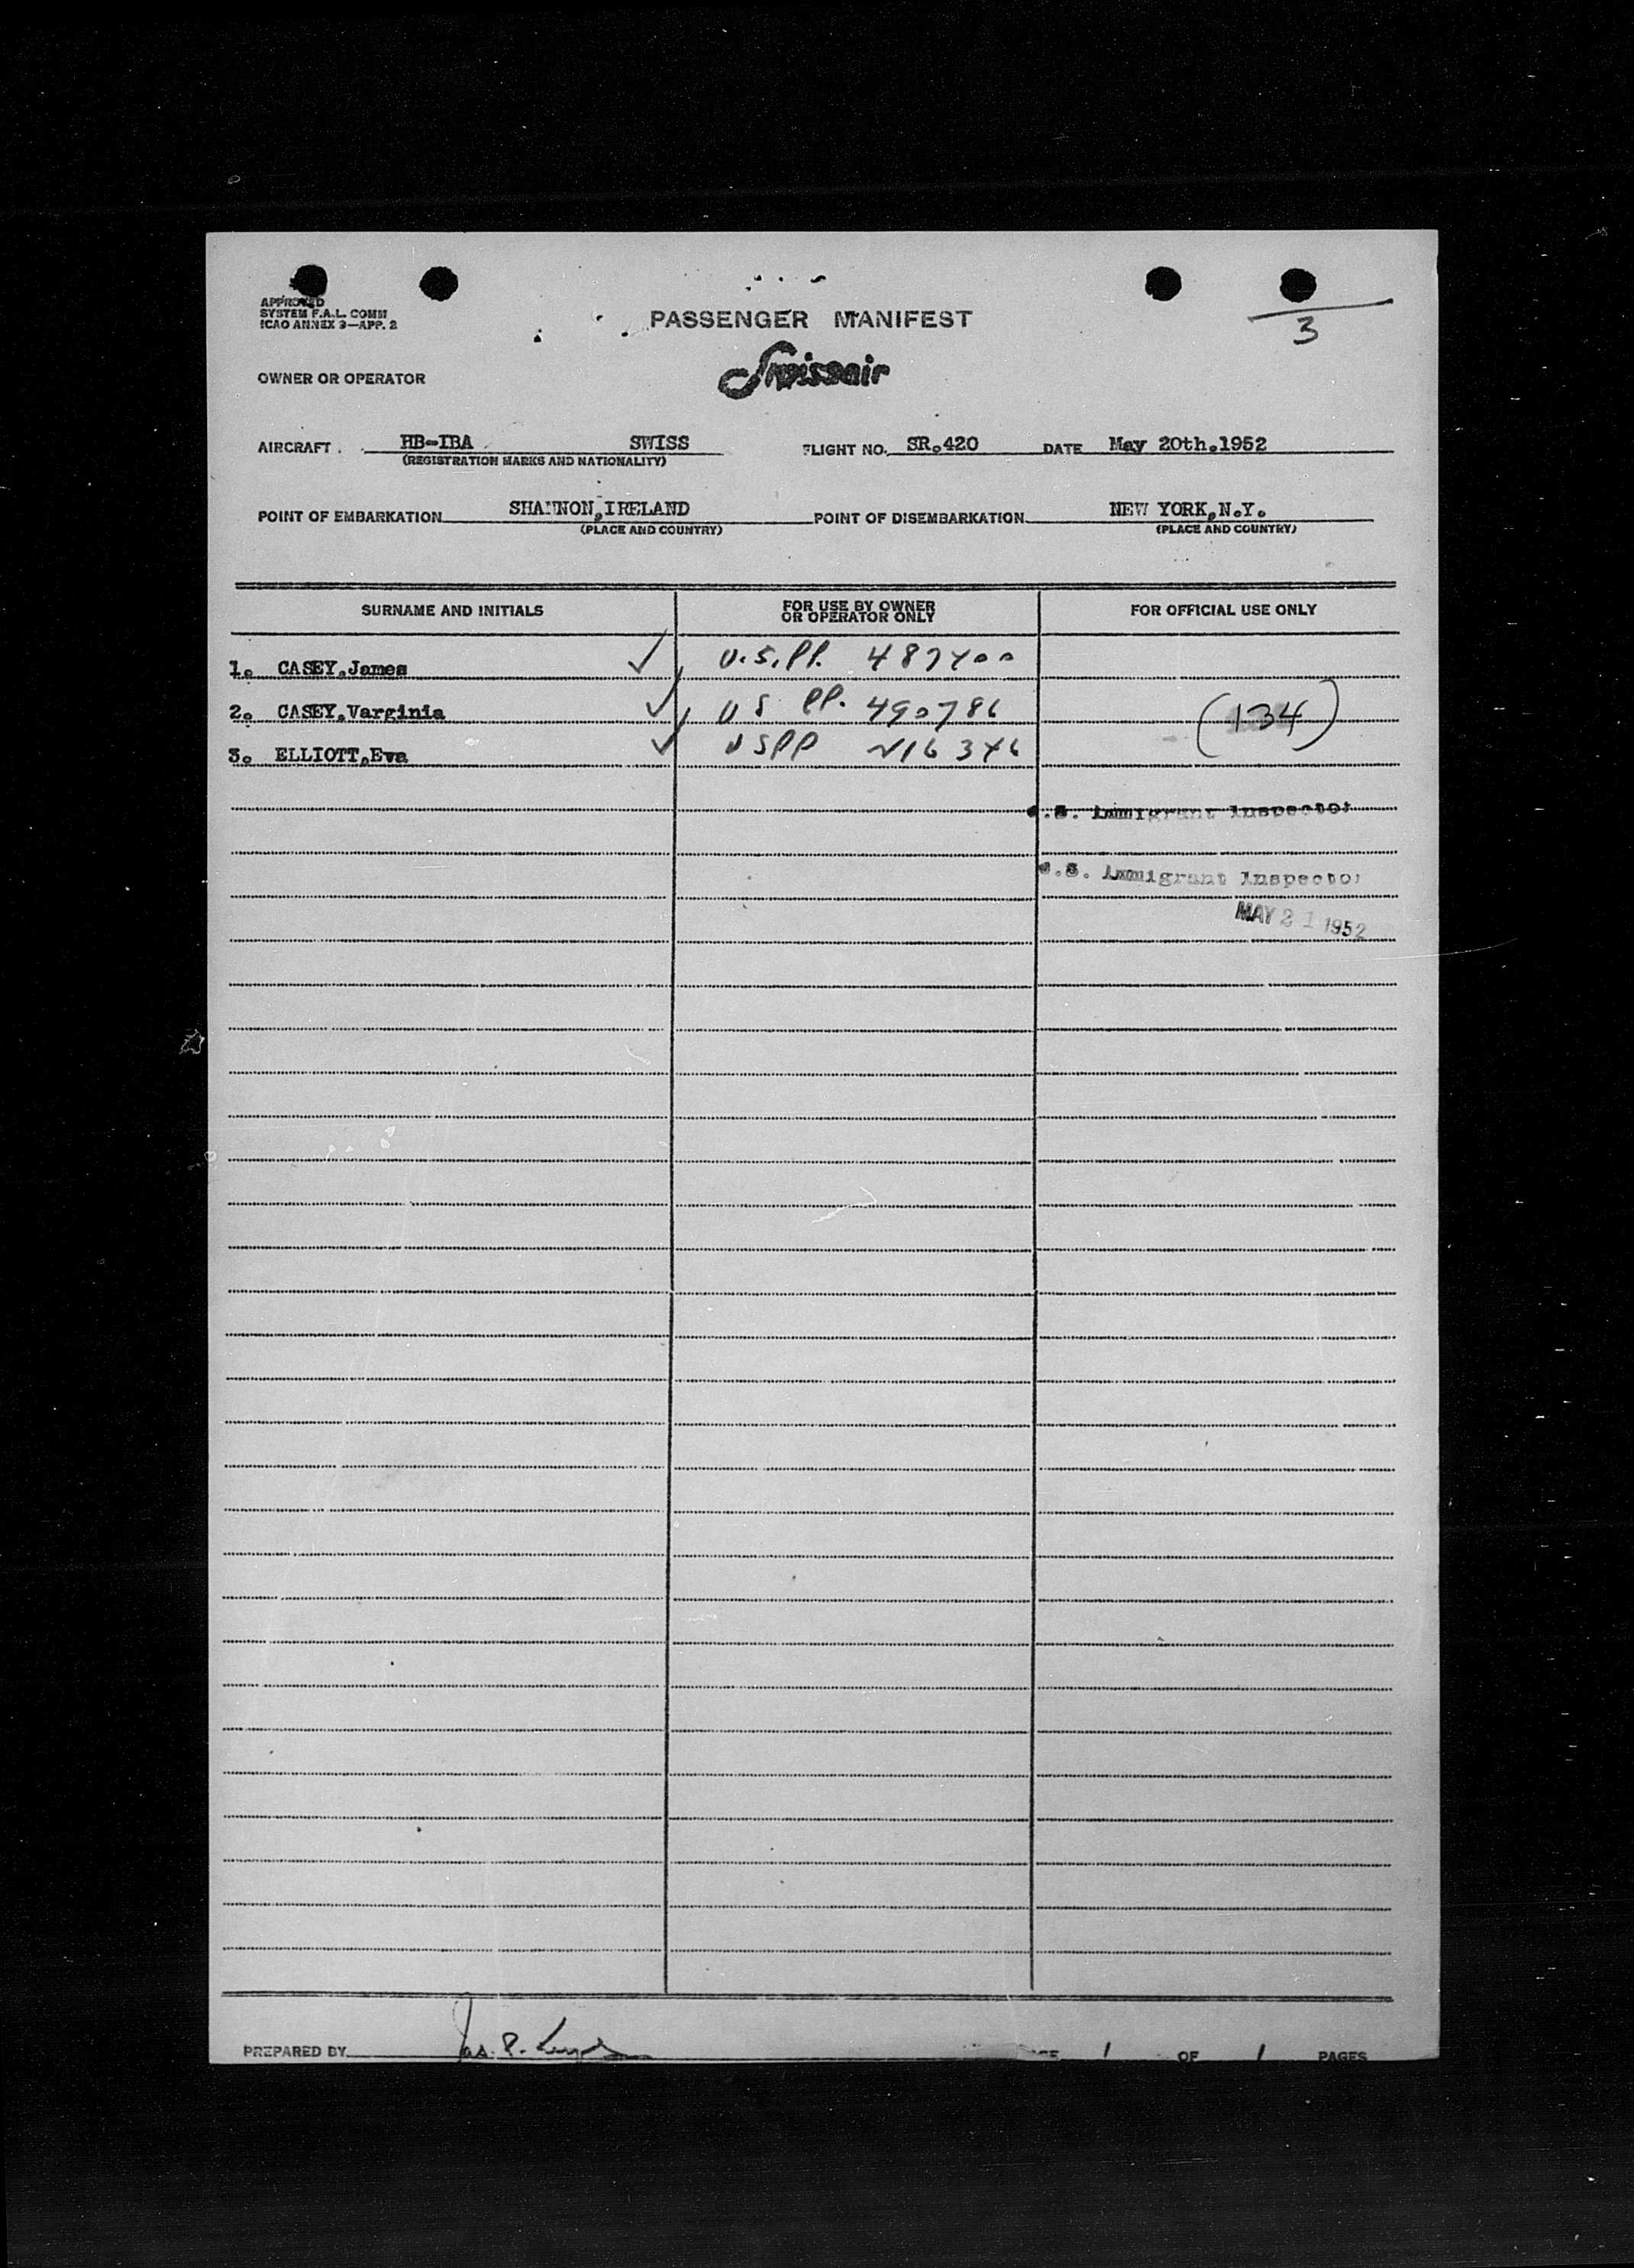 APPROVED
SYSTEM F.A.L. COMM
ICAO ANNEX 9—APP. 2
PASSENGER MANIFEST
3
OWNER OR OPERATOR
Swissair
AIRCRAFT . HB-IBA SWISS FLIGHT NO. SR.420 DATE May 20th.1952
(REGISTRATION MARKS AND NATIONALITY)
POINT OF EMBARKATION SHANNON,IRELAND POINT OF DISEMBARKATION NEW YORK,N.Y.
(PLACE AND COUNTRY) (PLACE AND COUNTRY)
SURNAME AND INITIALS FOR USE BY OWNER OR OPERATOR ONLY FOR OFFICIAL USE ONLY
1. CASEY,James U.S.PP. 487400
2. CASEY,Varginia US PP. 490786 (134)
3. ELLIOTT,Eva USPP 16346
.S. Immigrant Inspector
.S. Immigrant Inspector
MAY 21 1952
PREPARED BY Jas. P. 1 OF 1 PAGES